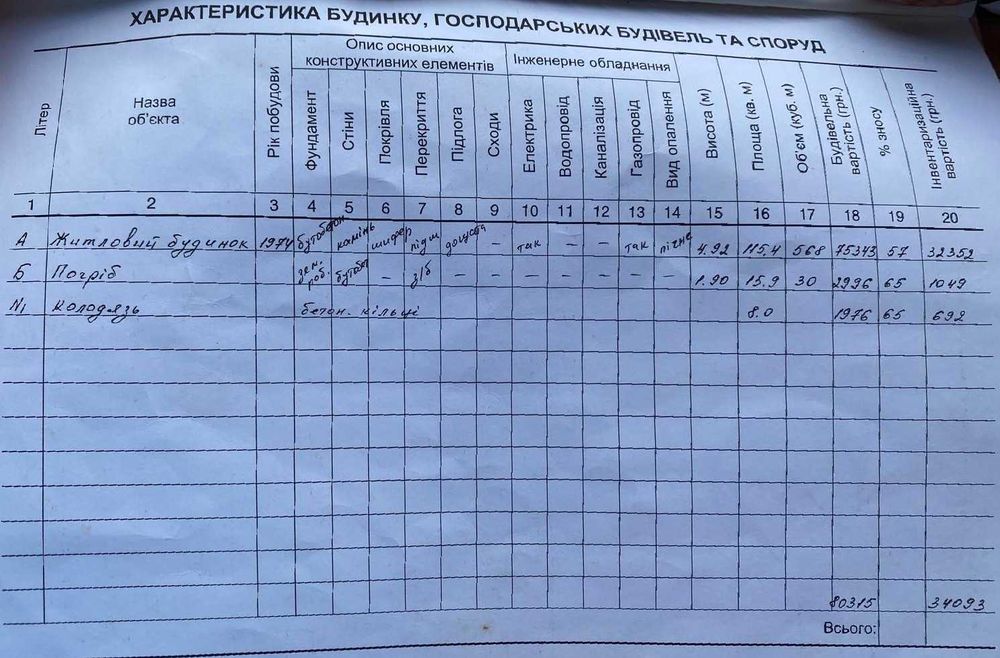 ХАРАКТЕРИСТИКА БУДИНКУ, ГОСПОДАРСЬКИХ БУДІВЕЛЬ ТА СПОРУД
Літер
Назва об'єкта
Рік побудови
Опис основних конструктивних елементів
Фундамент
Стіни
Покрівля
Перекриття
Підлога
Сходи
Інженерне обладнання
Електрика
Водопровід
Каналізація
Газопровід
Вид опалення
Висота (м)
Площа (кв. м)
Об'єм (куб. м)
Будівельна вартість (грн.)
% зносу
Інвентаризаційна вартість (грн.)
1 2 3 4 5 6 7 8 9 10 11 12 13 14 15 16 17 18 19 20
А Житловий будинок 1974 бутобетон камінь шифер підш дощата – так – – так пічне 4.92 115.4 568 75343 57 32352
Б Погріб зем. роб. бутобет – з/б – – – – – – – 1.90 15.9 30 2996 65 1049
N1 Колодязь бетон. кільці 8.0 1976 65 692
80315 34093
Всього: